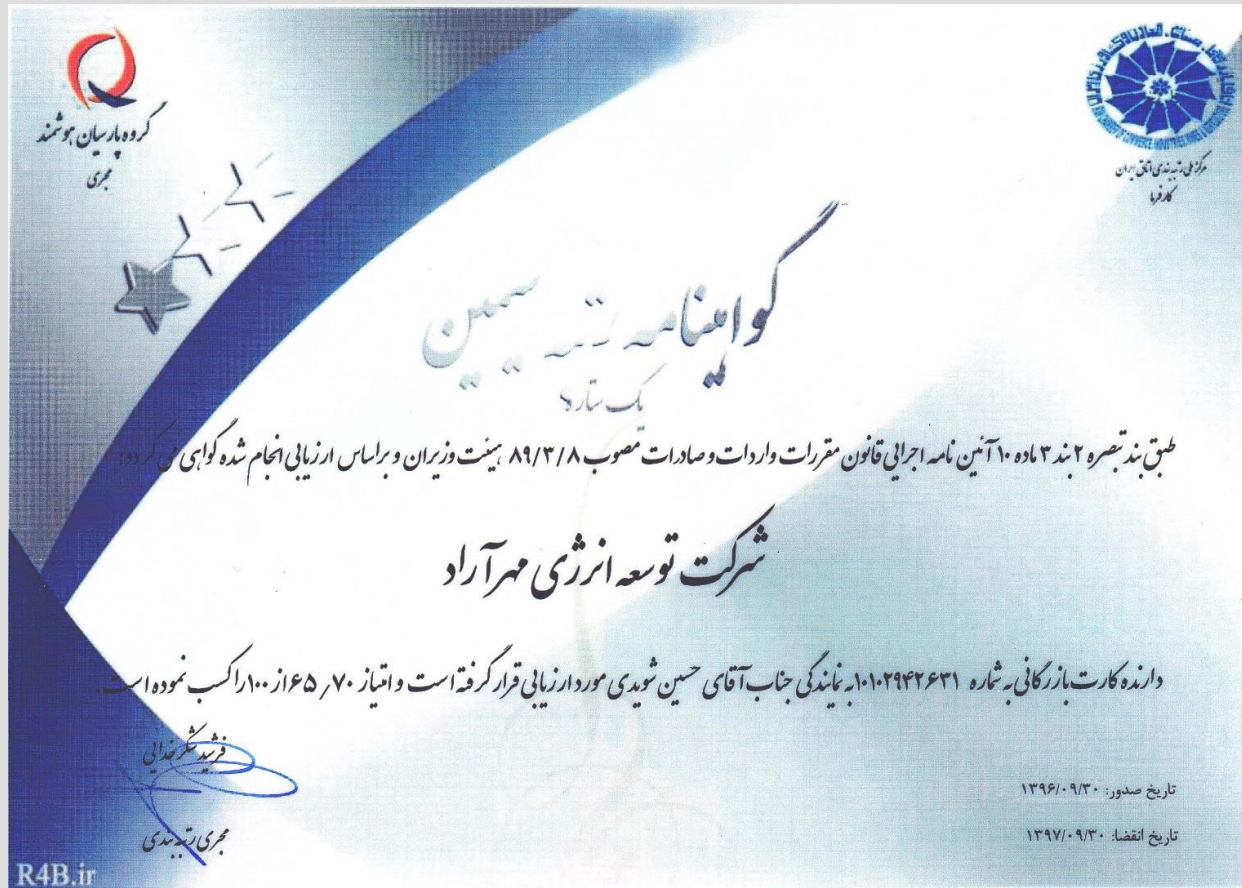 گروه پارسیان هوشمند
مجری
IRAN CHAMBER OF COMMERCE INDUSTRIES MINES &
مرکز ملی رتبه بندی اتاق ایران
کارفرما
گواهینامه رتبه سیمین
یک ستاره
طبق بند تبصره ۲ بند ۳ ماده ۱۰ آئین نامه اجرایی قانون مقررات واردات و صادرات مصوب ۸۹/۳/۸ هیئت وزیران و براساس ارزیابی انجام شده گواهی می گردد:
شرکت توسعه انرژی مهرآراد
دارنده کارت بازرگانی به شماره ۱۰۱۰۲۹۴۲۶۳۱ به نمایندگی جناب آقای حسین شویدی مورد ارزیابی قرار گرفته است و امتیاز ۶۵٫۷۰ از ۱۰۰ را کسب نموده است.
فرشید شکرخدایی
مجری رتبه بندی
تاریخ صدور: ۱۳۹۶/۰۹/۳۰
تاریخ انقضا: ۱۳۹۷/۰۹/۳۰
R4B.ir